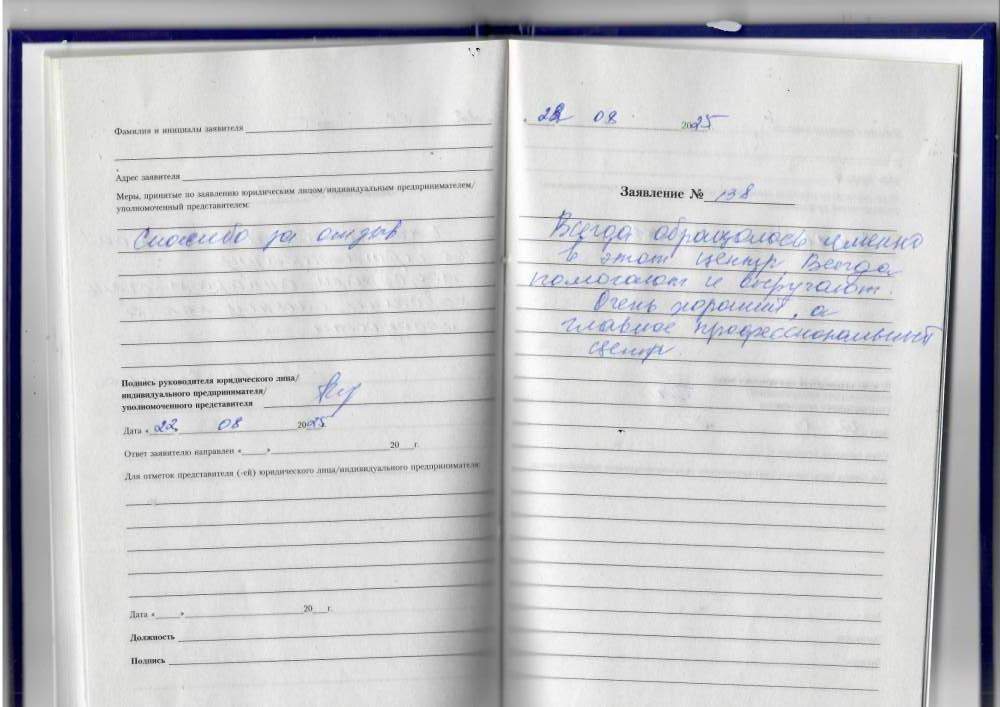 Фамилия и инициалы заявителя
Адрес заявителя
Меры, принятые по заявлению юридическим лицом/индивидуальным предпринимателем/
уполномоченный представителем:
Спасибо за отзыв
Подпись руководителя юридического лица/
индивидуального предпринимателя/
уполномоченного представителя
Дата « 22 08 2025
Ответ заявителю направлен « » 20 г.
Для отметок представителя (-ей) юридического лица/индивидуального предпринимателя:
Дата « » 20 г.
Должность
Подпись
22 08 2025
Заявление № 138
Всегда обращалось именно
в этот центр. Всегда
помогают и выручают.
Очень хороший, а
главное профессиональный
центр.